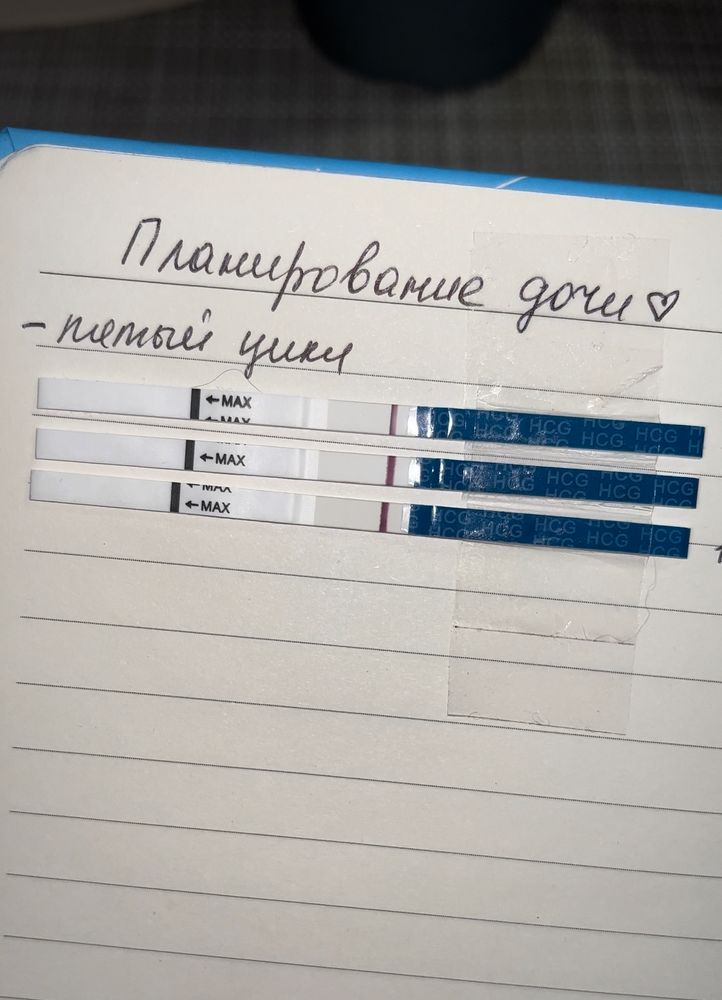 Планирование дочи♡
- пятый цикл
←MAX
←MAX
HCG HCG HCG
HCG HCG HCG
←MAX
HCG HCG HCG
HCG HCG HCG
←MAX
←MAX
HCG HCG HCG
HCG HCG HCG